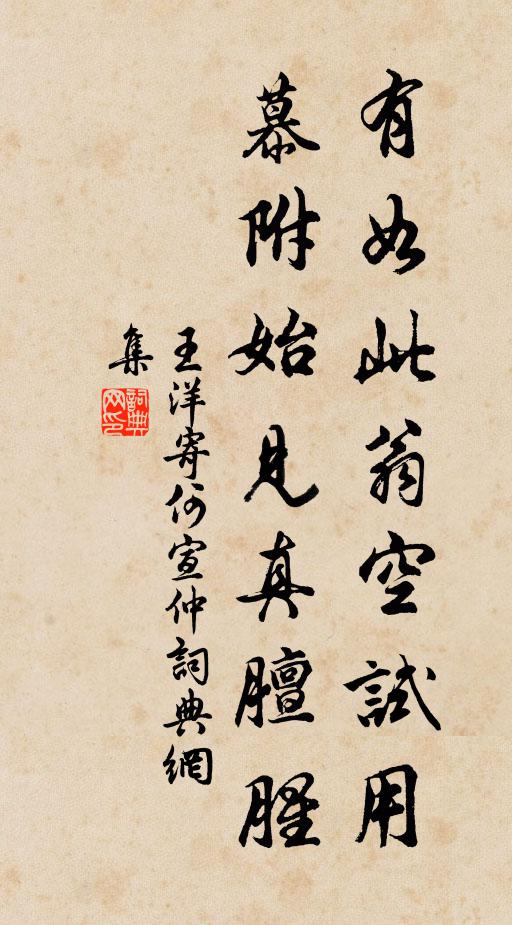 有如此翁空試用
慕附始見真膻腥
王洋寄何宣仲詞典網
集
詞典
网印